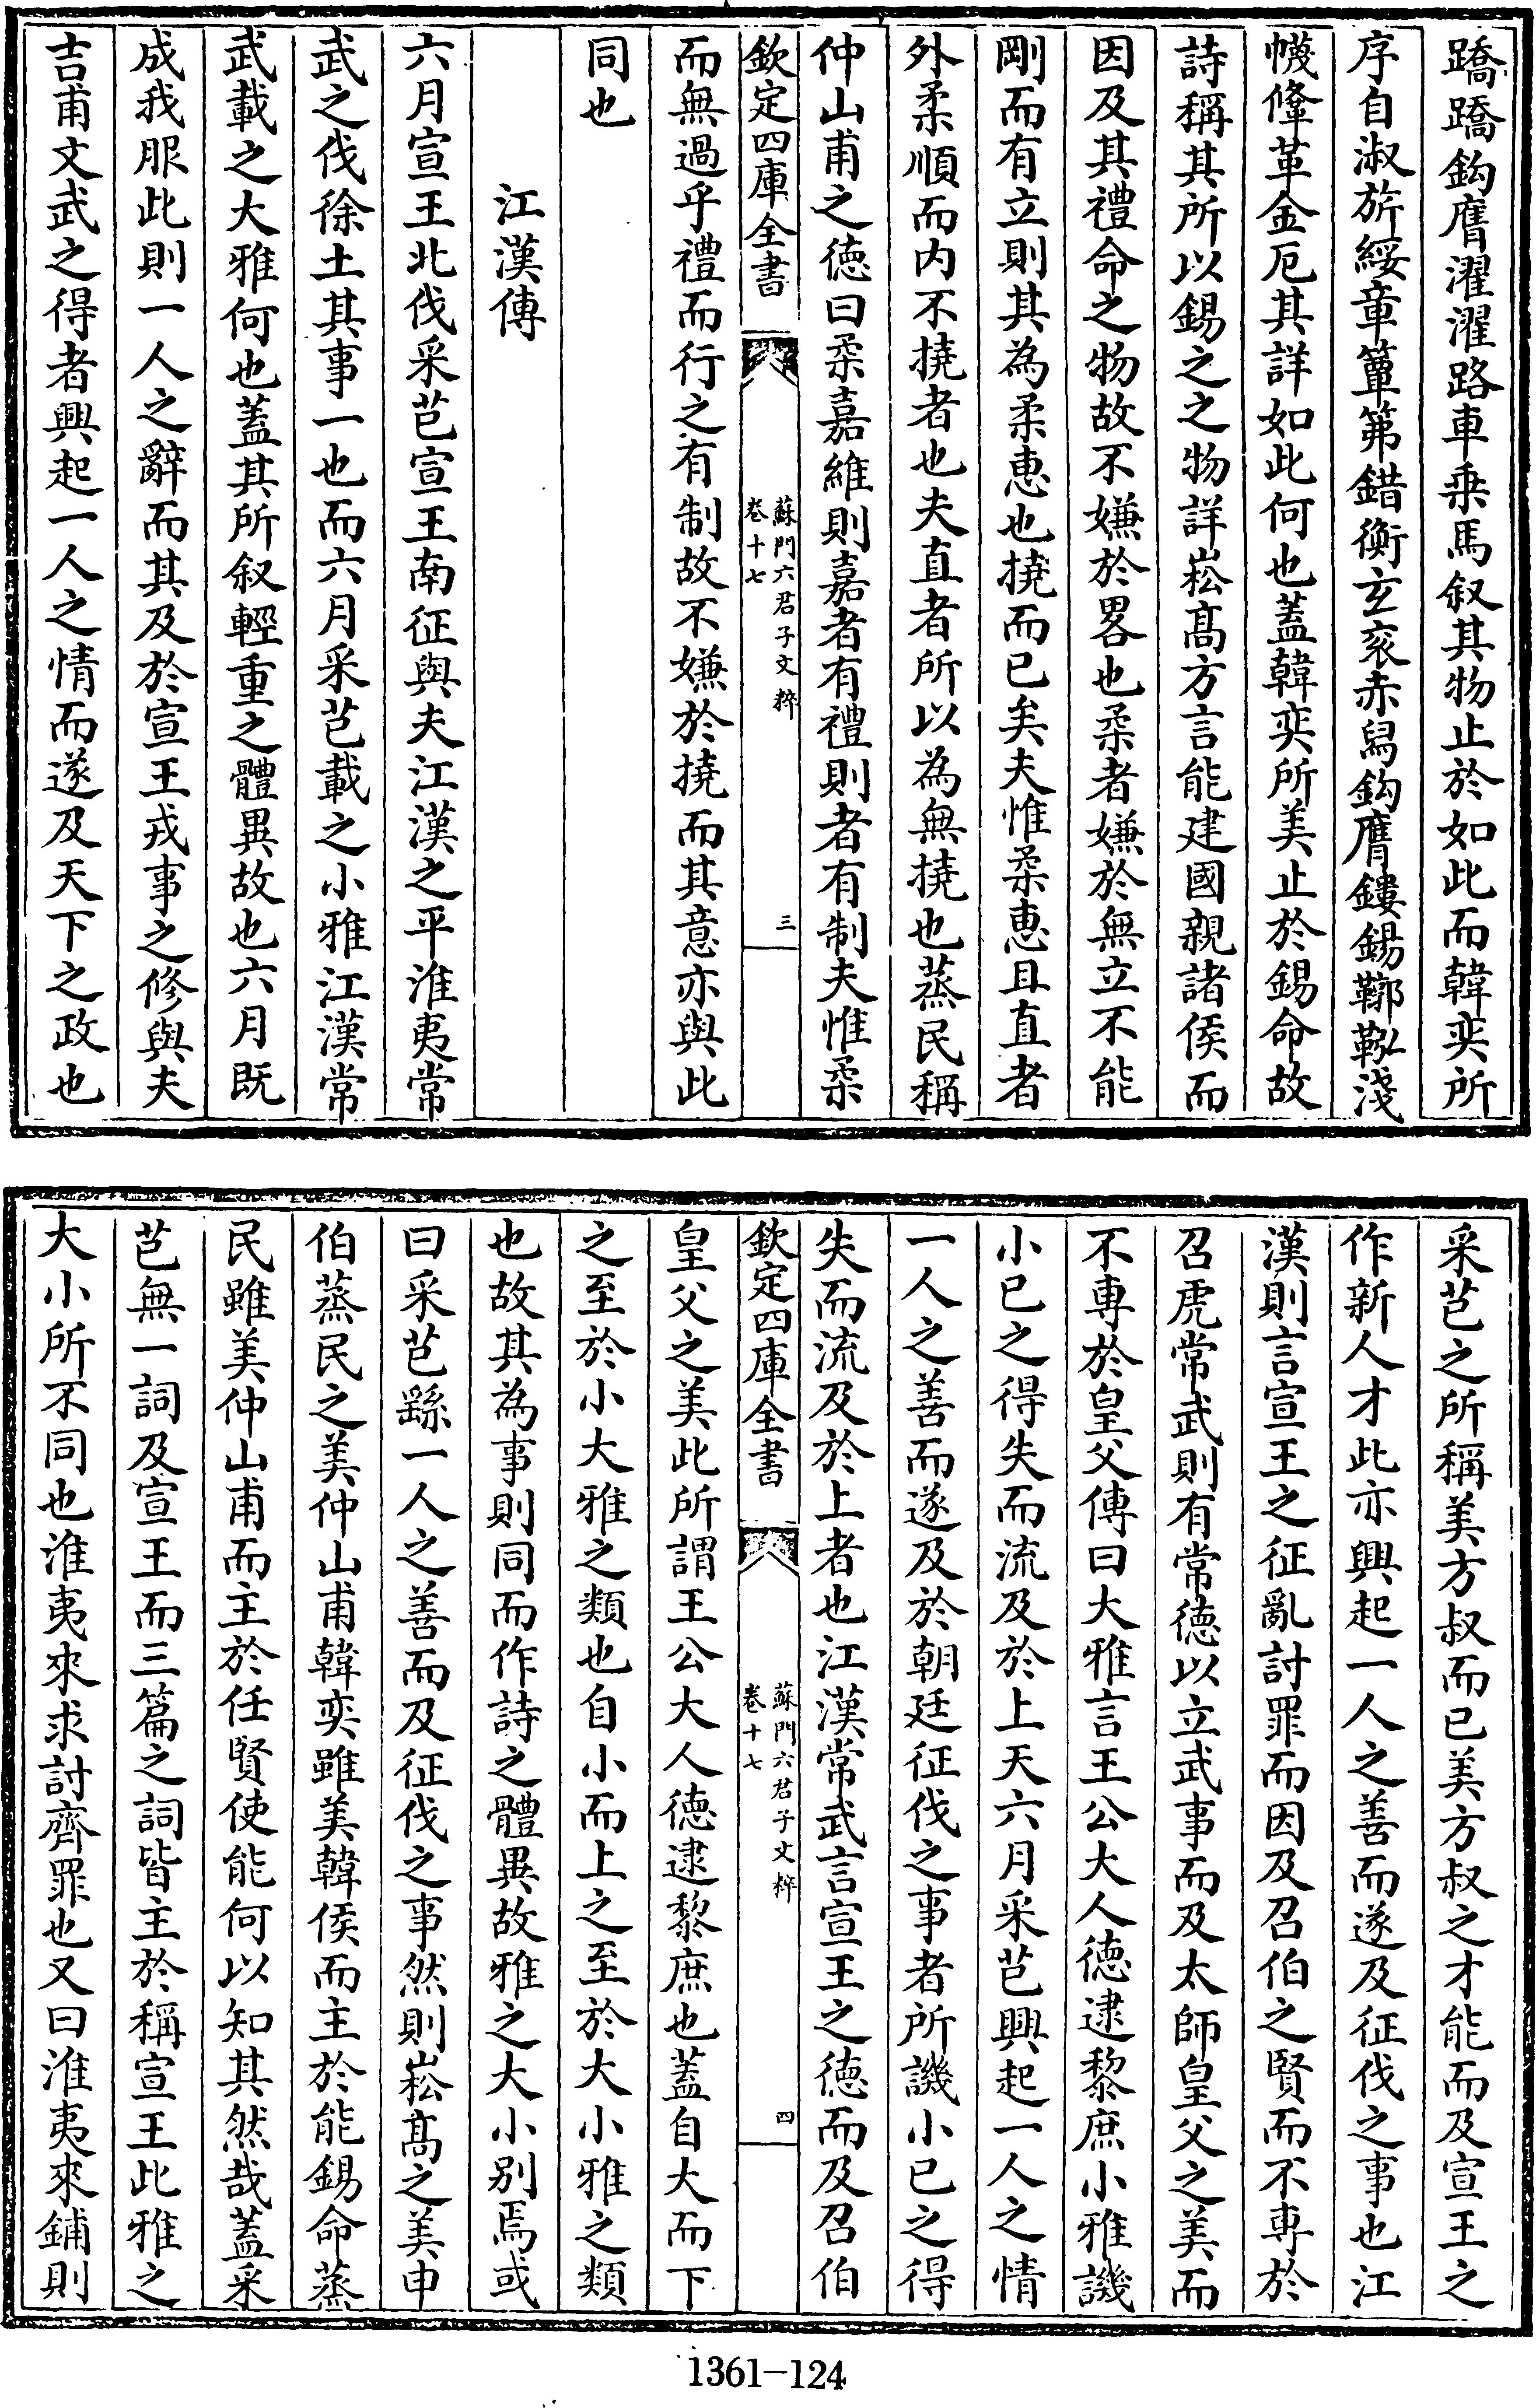 蹻蹻鈎膺濯濯路車乗馬叙其物止於如此而韓奕所
序自淑旂綏章簟笰錯衡玄衮赤舄鈎膺鏤錫鞹鞃淺
幭鞗革金厄其詳如此何也蓋韓奕所美止於錫命故
詩稱其所以錫之之物詳崧髙方言能建國親諸侯而
因及其禮命之物故不嫌於畧也柔者嫌於無立不能
剛而有立則其為柔惠也撓而已矣夫惟柔惠且直者
外柔順而内不撓者也夫直者所以為無撓也蒸民稱
仲山甫之徳曰柔嘉維則嘉者有禮則者有制夫惟柔
欽定四庫全書
蘇門六君子文粹
卷十七
三
而無過乎禮而行之有制故不嫌於撓而其意亦與此
同也
江漢傳
六月宣王北伐采芑宣王南征與夫江漢之平淮夷常
武之伐徐土其事一也而六月采芑載之小雅江漢常
武載之大雅何也蓋其所叙輕重之體異故也六月既
成我服此則一人之辭而其及於宣王戎事之修與夫
吉甫文武之得者興起一人之情而遂及天下之政也
采芑之所稱美方叔而已美方叔之才能而及宣王之
作新人才此亦興起一人之善而遂及征伐之事也江
漢則言宣王之征亂討罪而因及召伯之賢而不専於
召虎常武則有常徳以立武事而及太師皇父之美而
不専於皇父傳曰大雅言王公大人徳逮黎庶小雅譏
小已之得失而流及於上天六月采芑興起一人之情
一人之善而遂及於朝廷征伐之事者所譏小已之得
失而流及於上者也江漢常武言宣王之徳而及召伯
欽定四庫全書
蘇門六君子文粹
卷十七
四
皇父之美此所謂王公大人徳逮黎庶也蓋自大而下
之至於小大雅之類也自小而上之至於大小雅之類
也故其為事則同而作詩之體異故雅之大小别焉或
曰采芑繇一人之善而及征伐之事然則崧髙之美申
伯蒸民之美仲山甫韓奕雖美韓侯而主於能錫命蒸
民雖美仲山甫而主於任賢使能何以知其然哉蓋采
芑無一詞及宣王而三篇之詞皆主於稱宣王此雅之
大小所不同也淮夷來求討齊罪也又曰淮夷來鋪則
1361-124